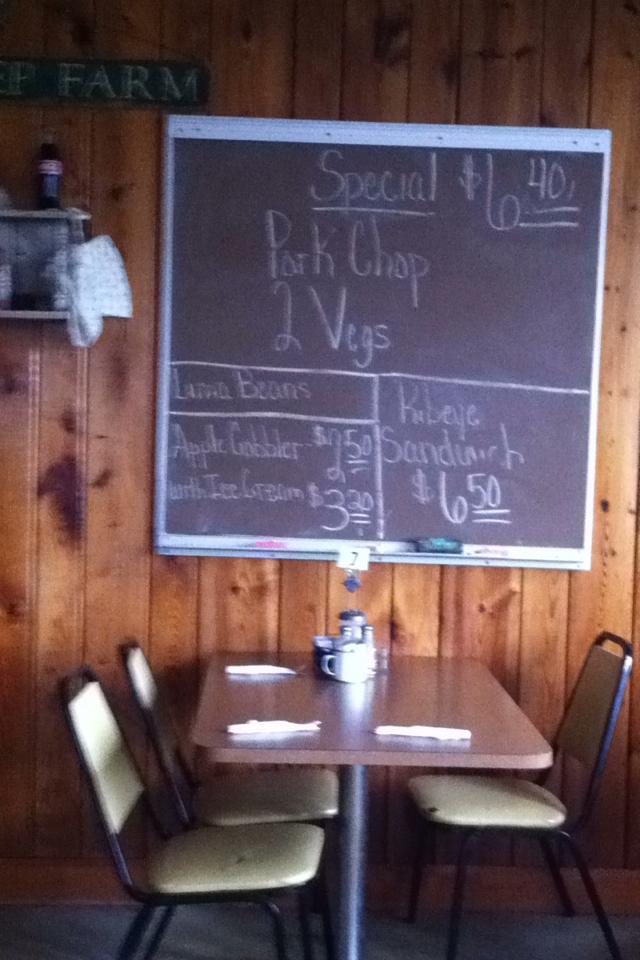 EP FARM
Special $6.40
Pork Chop
2 Vegs
Lima Beans
Apple Cobbler $2.50
with Ice Cream $3.20
Ribeye
Sandwich
$6.50
7